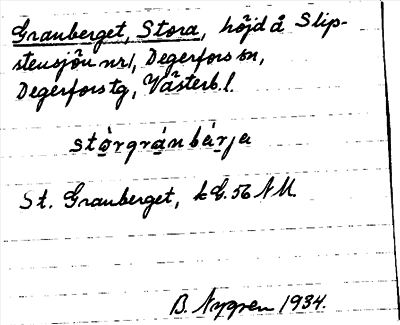 Granberget, Stora, höjd å Slip-
stensjön nr 1, Degerfors sn,
Degerfors tg, Västerb. l.
stòrgránbàrja
St. Granberget, k G. 56 NM.
B. Nygren 1934.